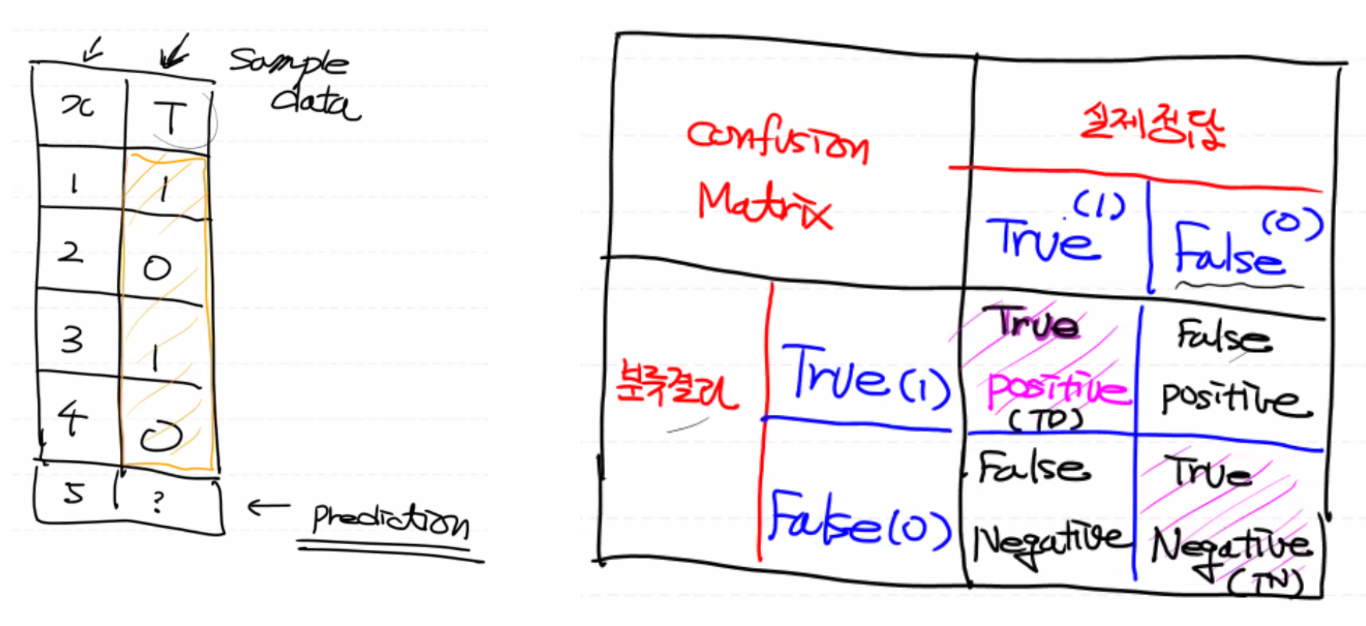 Sample
data
x T
1 1
2 0
3 1
4 0
5 ?
← Prediction
Confusion
Matrix
실제정답
True (1)
False (0)
분류결과
True (1)
True
positive
(TP)
False
positive
False (0)
False
Negative
True
Negative
(TN)